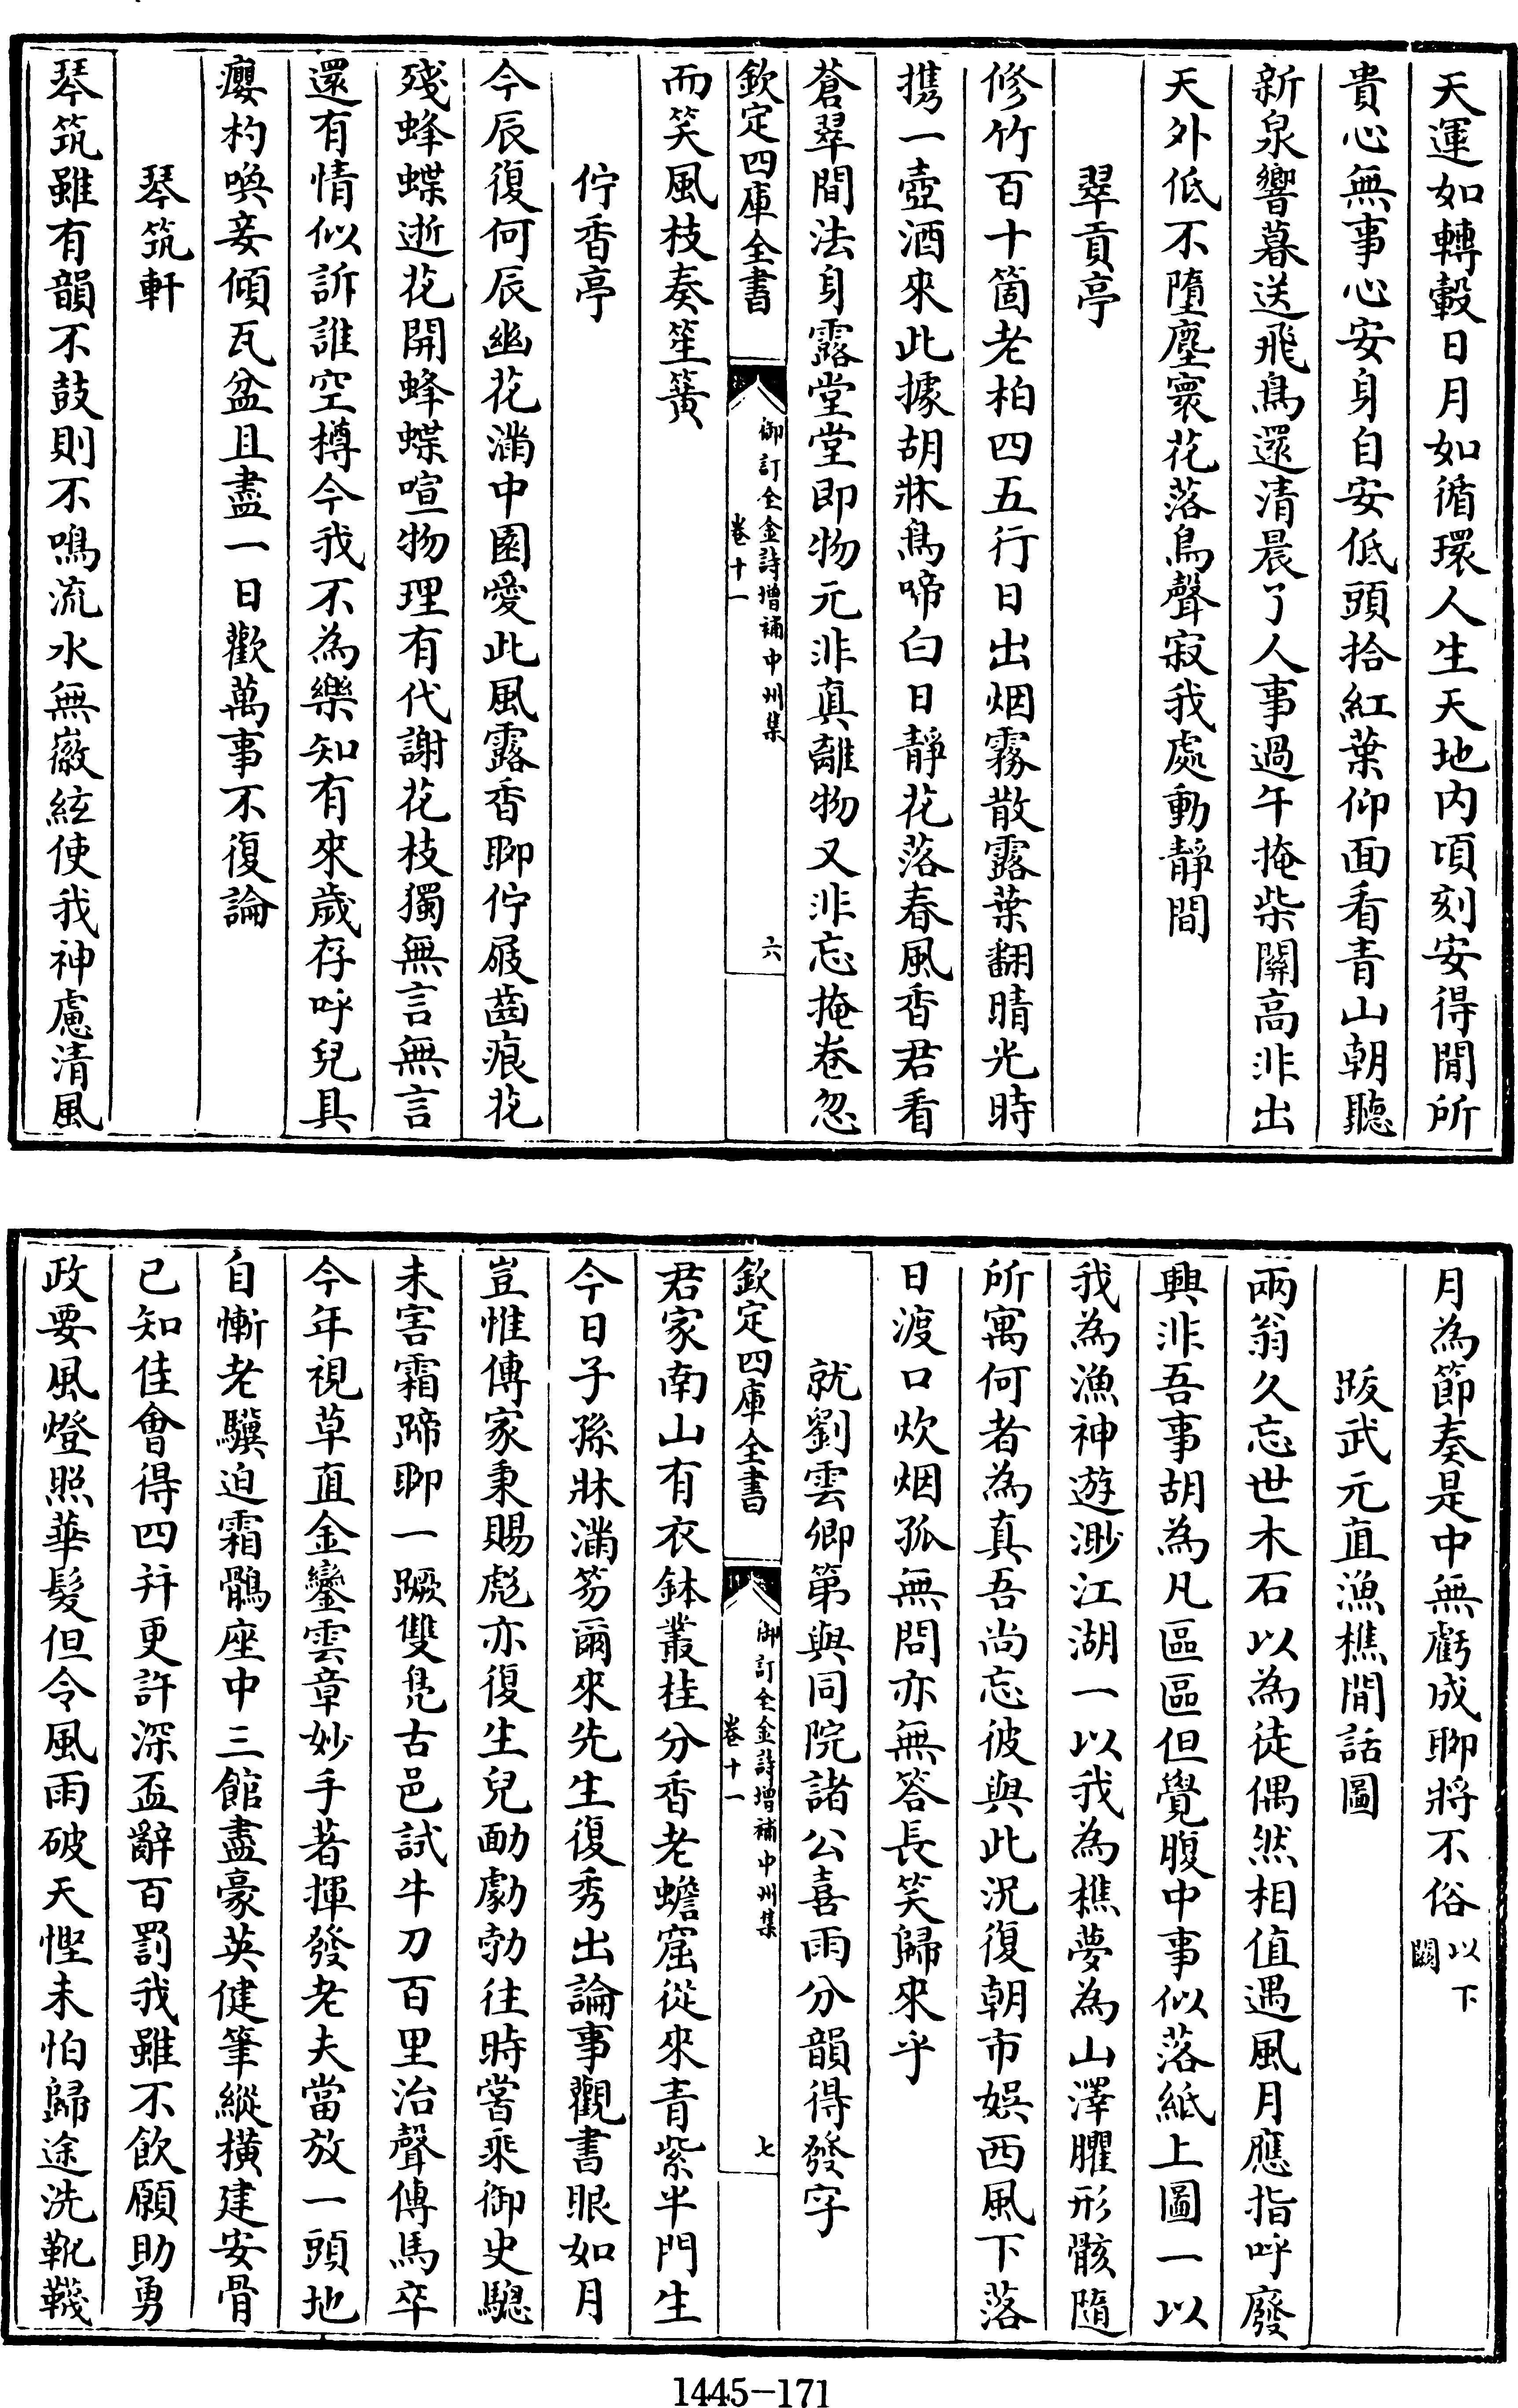 天運如轉轂日月如循環人生天地內頃刻安得閒所
貴心無事心安身自安低頭拾紅葉仰面看青山朝聽
新泉響暮送飛鳥還清晨了人事過午掩柴關高非出
天外低不墮塵寰花落鳥聲寂我處動靜間
翠貢亭
修竹百十箇老柏四五行日出烟霧散露葉翻晴光時
携一壺酒來此據胡牀鳥啼白日靜花落春風香君看
蒼翠間法身露堂堂即物元非真離物又非忘掩卷忽
欽定四庫全書
御訂全金詩增補中州集
卷十一
六
而笑風枝奏笙簧
佇香亭
今辰復何辰幽花滿中園愛此風露香聊佇屐齒痕花
殘蜂蝶逝花開蜂蝶喧物理有代謝花枝獨無言無言
還有情似訴誰空樽今我不為樂知有來歲存呼兒具
癭杓喚妾傾瓦盆且盡一日歡萬事不復論
琴筑軒
琴筑雖有韻不鼓則不鳴流水無徽絃使我神慮清風
月為節奏是中無虧成聊將不俗以下
闕
跋武元直漁樵閒話圖
兩翁久忘世木石以為徒偶然相值遇風月應指呼廢
興非吾事胡為凡區區但覺腹中事似落紙上圖一以
我為漁神遊渺江湖一以我為樵夢為山澤臞形骸隨
所寓何者為真吾尚忘彼與此況復朝市娛西風下落
日渡口炊烟孤無問亦無答長笑歸來乎
就劉雲卿第與同院諸公喜雨分韻得發字
欽定四庫全書
御訂全金詩增補中州集
卷十一
七
君家南山有衣鉢叢桂分香老蟾窟從來青紫半門生
今日子孫牀滿笏爾來先生復秀出論事觀書眼如月
豈惟傳家秉賜彪亦復生兒勔劇勃往時嘗乘御史驄
未害霜蹄聊一蹶雙鳧古邑試牛刀百里治聲傳馬卒
今年視草直金鑾雲章妙手著揮發老夫當放一頭地
自慚老驥迫霜鶻座中三館盡豪英健筆縱橫建安骨
已知佳會得四并更許深盃辭百罰我雖不飲願助勇
政要風燈照華髮但令風雨破天慳未怕歸途洗靴韈
1445-171